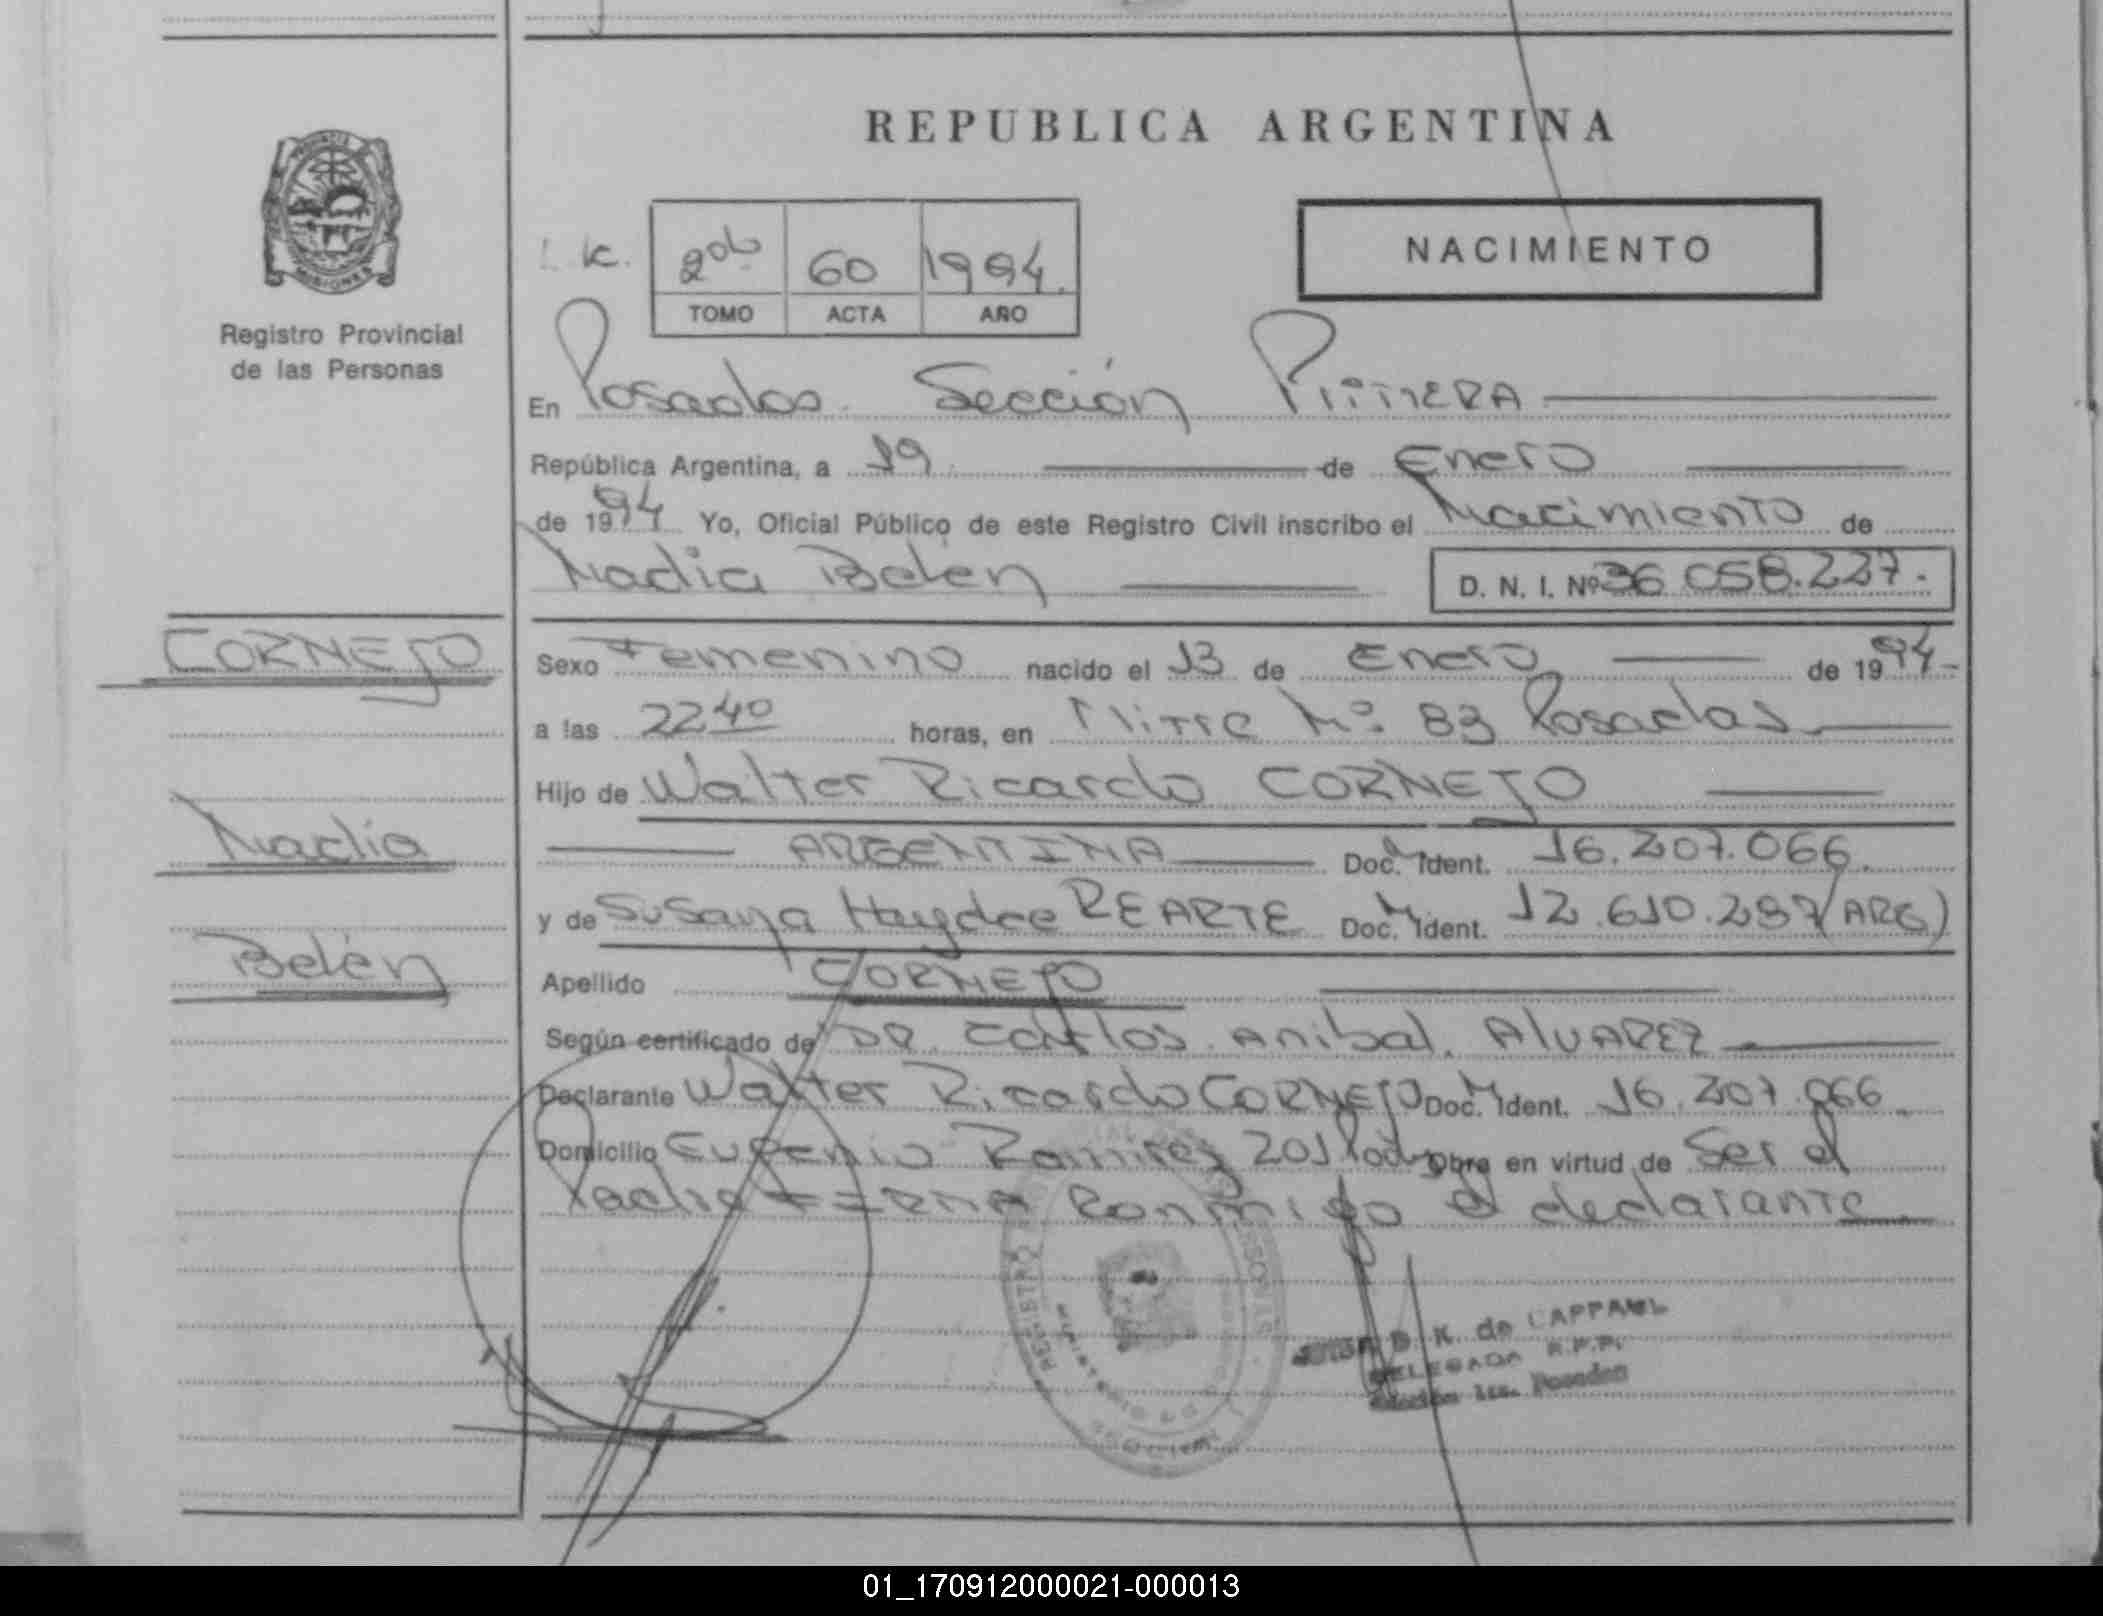 REPUBLICA ARGENTINA
MISIONES
Registro Provincial
de las Personas
NACIMIENTO
2do 60 1994.
TOMO ACTA AÑO
En Posadas Sección Primera
República Argentina, a 19 de Enero
de 1994 Yo, Oficial Público de este Registro Civil inscribo el Nacimiento de
Nadia Belen
D. N. I. Nº 36 058.227.
CORNEJO
Nadia
Belén
Sexo Femenino nacido el 13 de Enero de 1994
a las 22 40 horas, en Mitre Nº 83 Posadas
Hijo de Walter Ricardo CORNEJO
ARGENTINA Doc. Ident. 16.207.066.
y de Susana Haydee REARTE Doc. Ident. 12.610.287 (ARG)
Apellido CORNEJO
Según certificado de DR. Carlos Anibal ALVAREZ
Declarante Walter Ricardo CORNEJO Doc. Ident. 16.207.066
Domicilio Eugenio Ramirez 201 Obra en virtud de Ser el
Padre FIRMA Conmigo el declarante
REGISTRO PERSONAS
MINISTERIO
MISIONES
B. K. de
DELEGADA R.P.P.
Sección 1ra. Posadas
01_170912000021-000013